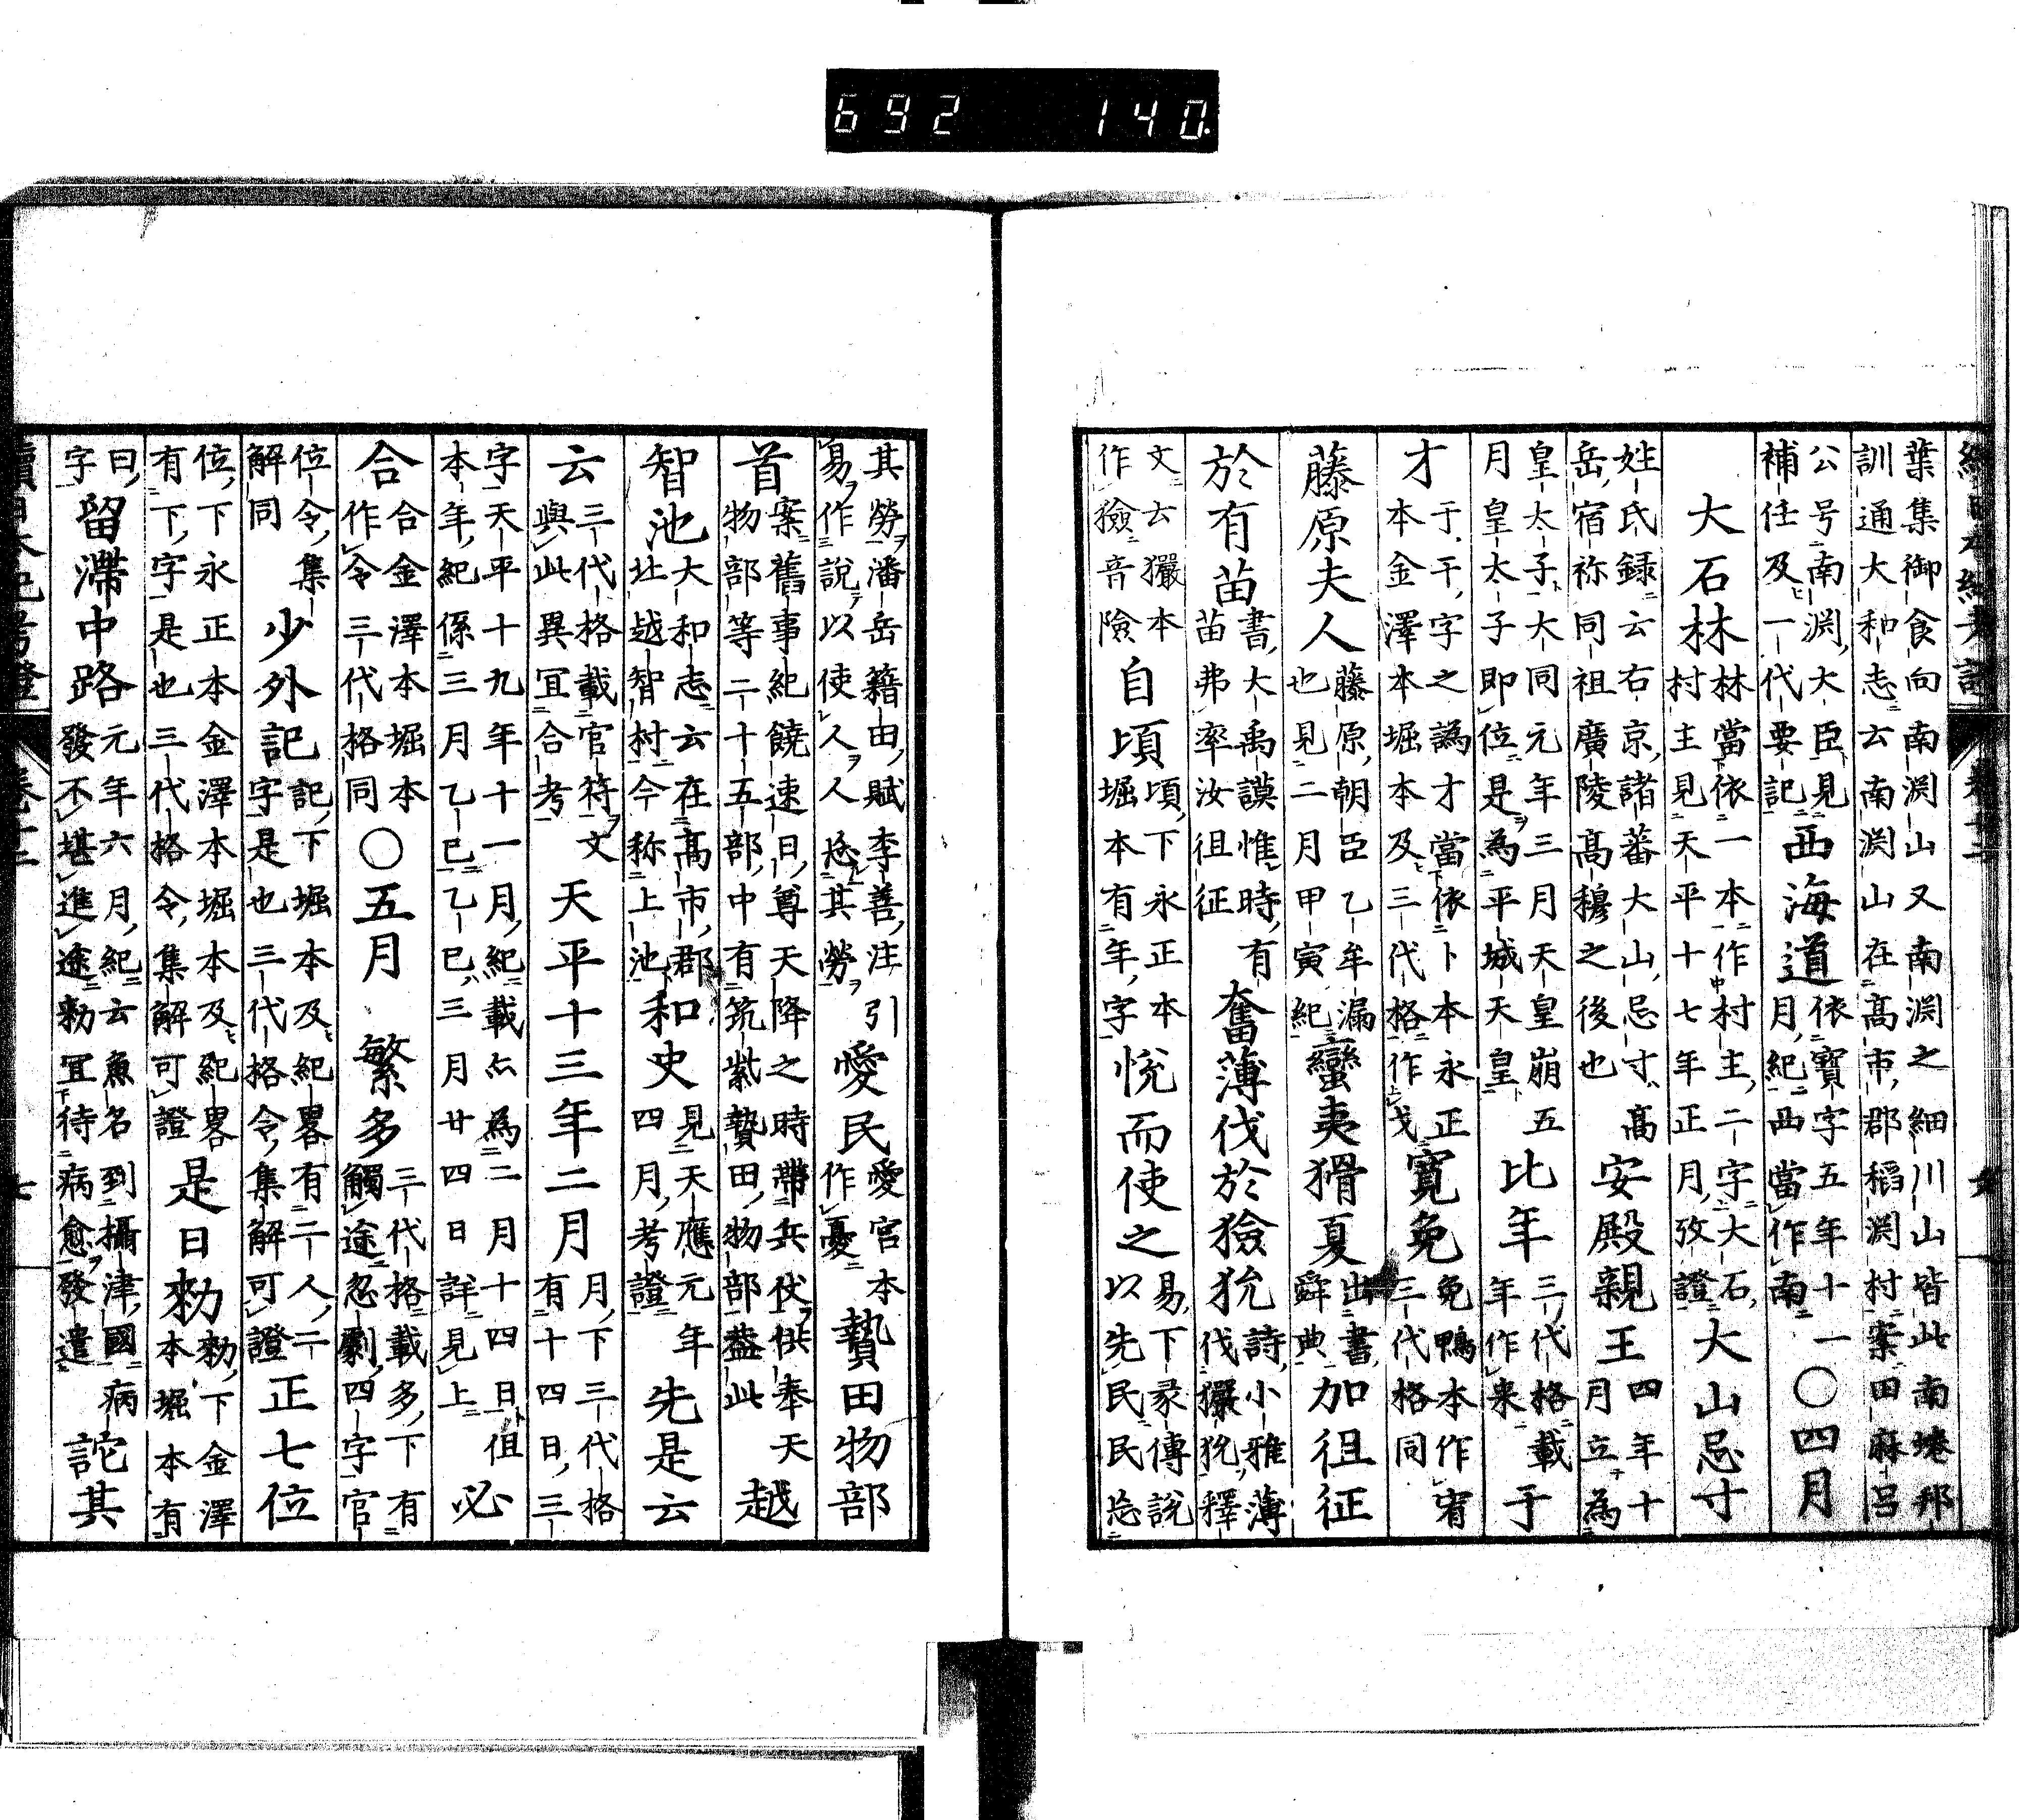 692 140.
葉集御食向南淵山又南淵之細川山皆此南埢邦
訓通大和志云南淵山在高市郡稻淵村案田麻呂
公号南淵大臣見
補任及一代要記
西海道
依寶字五年十一
月紀西當作南
〇四月
大石林
林當依一本作村主二字大石
村主見天平十七年正月攷證
大山忌寸
姓氏録云右京諸蕃大山忌寸高
岳宿祢同祖廣陵高穆之後也
安殿親王
四年十
月立為
皇太子大同元年三月天皇崩五
月皇太子即位是為平城天皇
比年
三代格載
年作来
于
才
于干字之譌才當依卜本永正
本金澤本堀本及三代格作戈
寛免
免鴨本作宥
三代格同
藤原夫人
藤原朝臣乙牟漏
也見二月甲寅紀
蠻夷猾夏
出書
舜典
加徂征
於有苗
書大禹謨惟時有
苗弗率汝徂征
奮薄伐於獫狁
詩小雅薄
伐玁狁釋
文云玁本
作獫音險
自頃
頃下永正本
堀本有年字
悦而使之
易下彖傳説
以先民民忘
其勞潘岳籍田賦李善注引
易作説以使人人忘其勞
愛民
愛宮本
作憂
贄田物部
首
案舊事紀饒速日尊天降之時帶兵仗供奉天
物部等二十五部中有筑紫贄田物部蓋此
越
智池
大和志云在高市郡
北越智村今称上池
和史
見天應元年
四月考證
先是云
云
三代格載官符文
與此異宜合考
天平十三年二月
月下三代格
有十四日三
字天平十九年十一月紀載亦為二月十四日但
本年紀係三月乙巳乙巳三月廿四日詳見上
必
合
合金澤本堀本
作令三代格同
〇五月
繁多
三代格載多下有
觸途忽劇四字官
位令集
解同
少外記
記下堀本及紀畧有二人二
字是也三代格令集解可證
正七位
位下永正本金澤本堀本及紀畧
有下字是也三代格令集解可證
是日勅
勅下金澤
本堀本有
曰
字
留滞中路
元年六月紀云魚名到攝津國病
發不堪進途勅宜待病愈發遣
詑其
續日本紀考證
卷十二
七